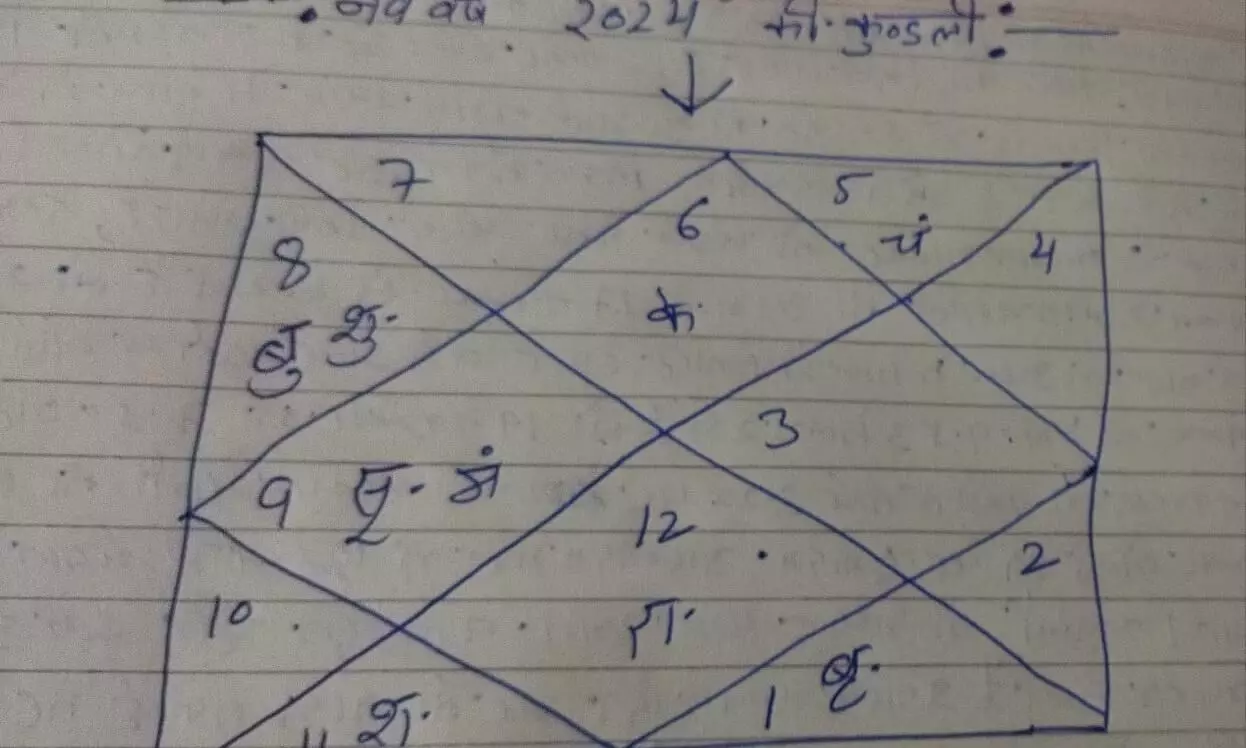 नव वर्ष 2024 की कुण्डली
7 6 5
8 चं 4
बु शु के
3
9 सू. मं
12
10 रा. 2
11 श. 1 बृ.